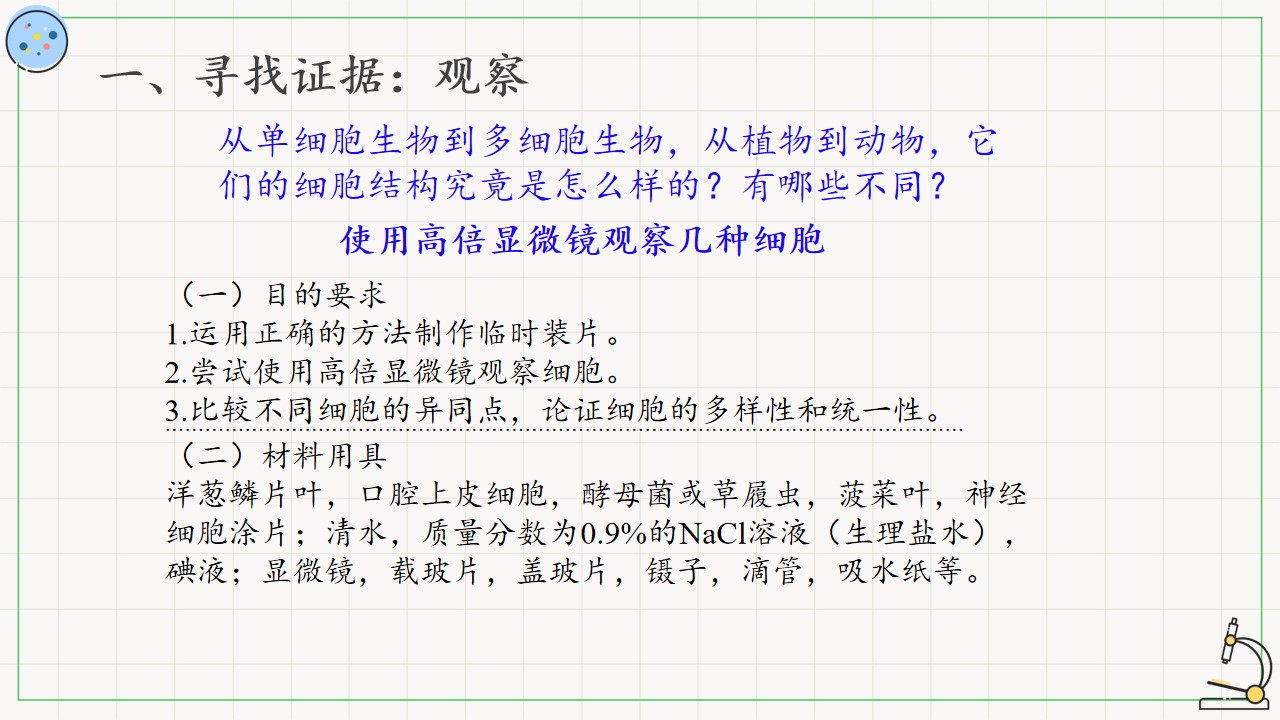 一、寻找证据：观察
从单细胞生物到多细胞生物，从植物到动物，它
们的细胞结构究竟是怎么样的？有哪些不同？
使用高倍显微镜观察几种细胞
（一）目的要求
1.运用正确的方法制作临时装片。
2.尝试使用高倍显微镜观察细胞。
3.比较不同细胞的异同点，论证细胞的多样性和统一性。
（二）材料用具
洋葱鳞片叶，口腔上皮细胞，酵母菌或草履虫，菠菜叶，神经
细胞涂片；清水，质量分数为0.9%的NaCl溶液（生理盐水），
碘液；显微镜，载玻片，盖玻片，镊子，滴管，吸水纸等。